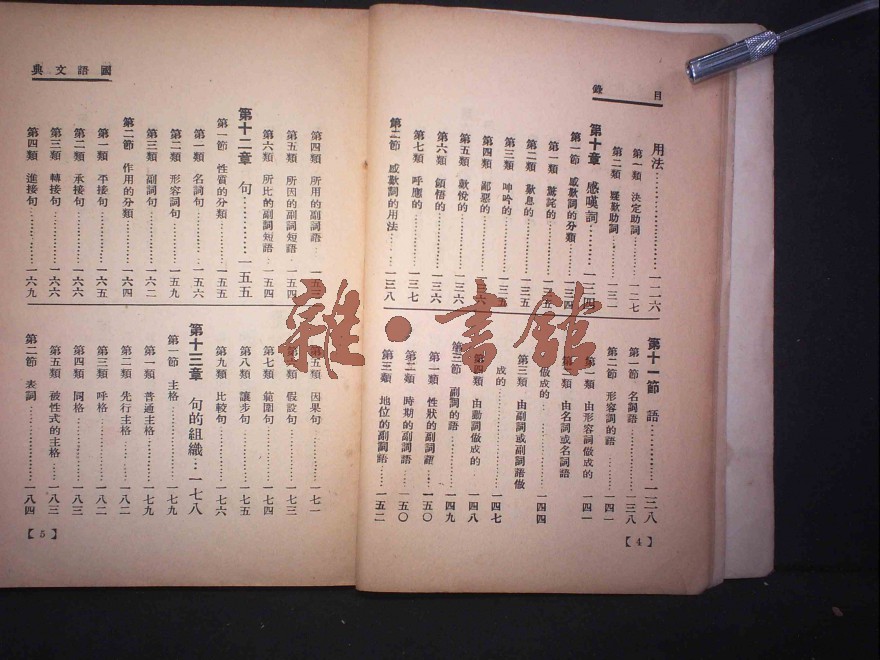 目錄
用法……一二六
第一類 決定助詞……一二七
第二類 疑歎助詞……一三一
第十章 感嘆詞……一三四
第一節 感歎詞的分類……一三四
第一類 驚詫的……一三五
第二類 歎息的……一三五
第三類 呻吟的……一三五
第四類 鄙惡的……一三六
第五類 歡悅的……一三六
第六類 領悟的……一三六
第七類 呼應的……一三七
第二節 感歎詞的用法……一三八
第十一節 語……一三八
第一節 名詞語……一三八
第二節 形容詞的語……一四一
第一類 由形容詞做成的 一四一
第二類 由名詞或名詞語
做成的……一四四
第三類 由副詞或副詞語做
成的……一四七
第四類 由動詞做成的……一四八
第三節 副詞的語……一四九
第一類 性狀的副詞語……一五〇
第二類 時期的副詞語……一五〇
第三類 地位的副詞語……一五二
【4】
國語文典
第四類 所用的副詞語……一五三
第五類 所因的副詞短語……一五四
第六類 所比的副詞短語……一五四
第十二章 句……一五五
第一節 性質的分類……一五五
第一類 名詞句……一五六
第二類 形容詞句……一五九
第三類 副詞句……一六二
第二節 作用的分類……一六四
第一類 平接句……一六五
第二類 承接句……一六六
第三類 轉接句……一六六
第四類 進接句……一六九
第五類 因果句……一七一
第六類 假設句……一七三
第七類 範圍句……一七四
第八類 讓步句……一七五
第九類 比較句……一七六
第十三章 句的組織…一七八
第一節 主格……一七九
第一類 普通主格……一七九
第二類 先行主格……一八二
第三類 呼格……一八二
第四類 同格……一八三
第五類 被性式的主格……一八三
第二節 表詞……一八四
【5】
雜·書館